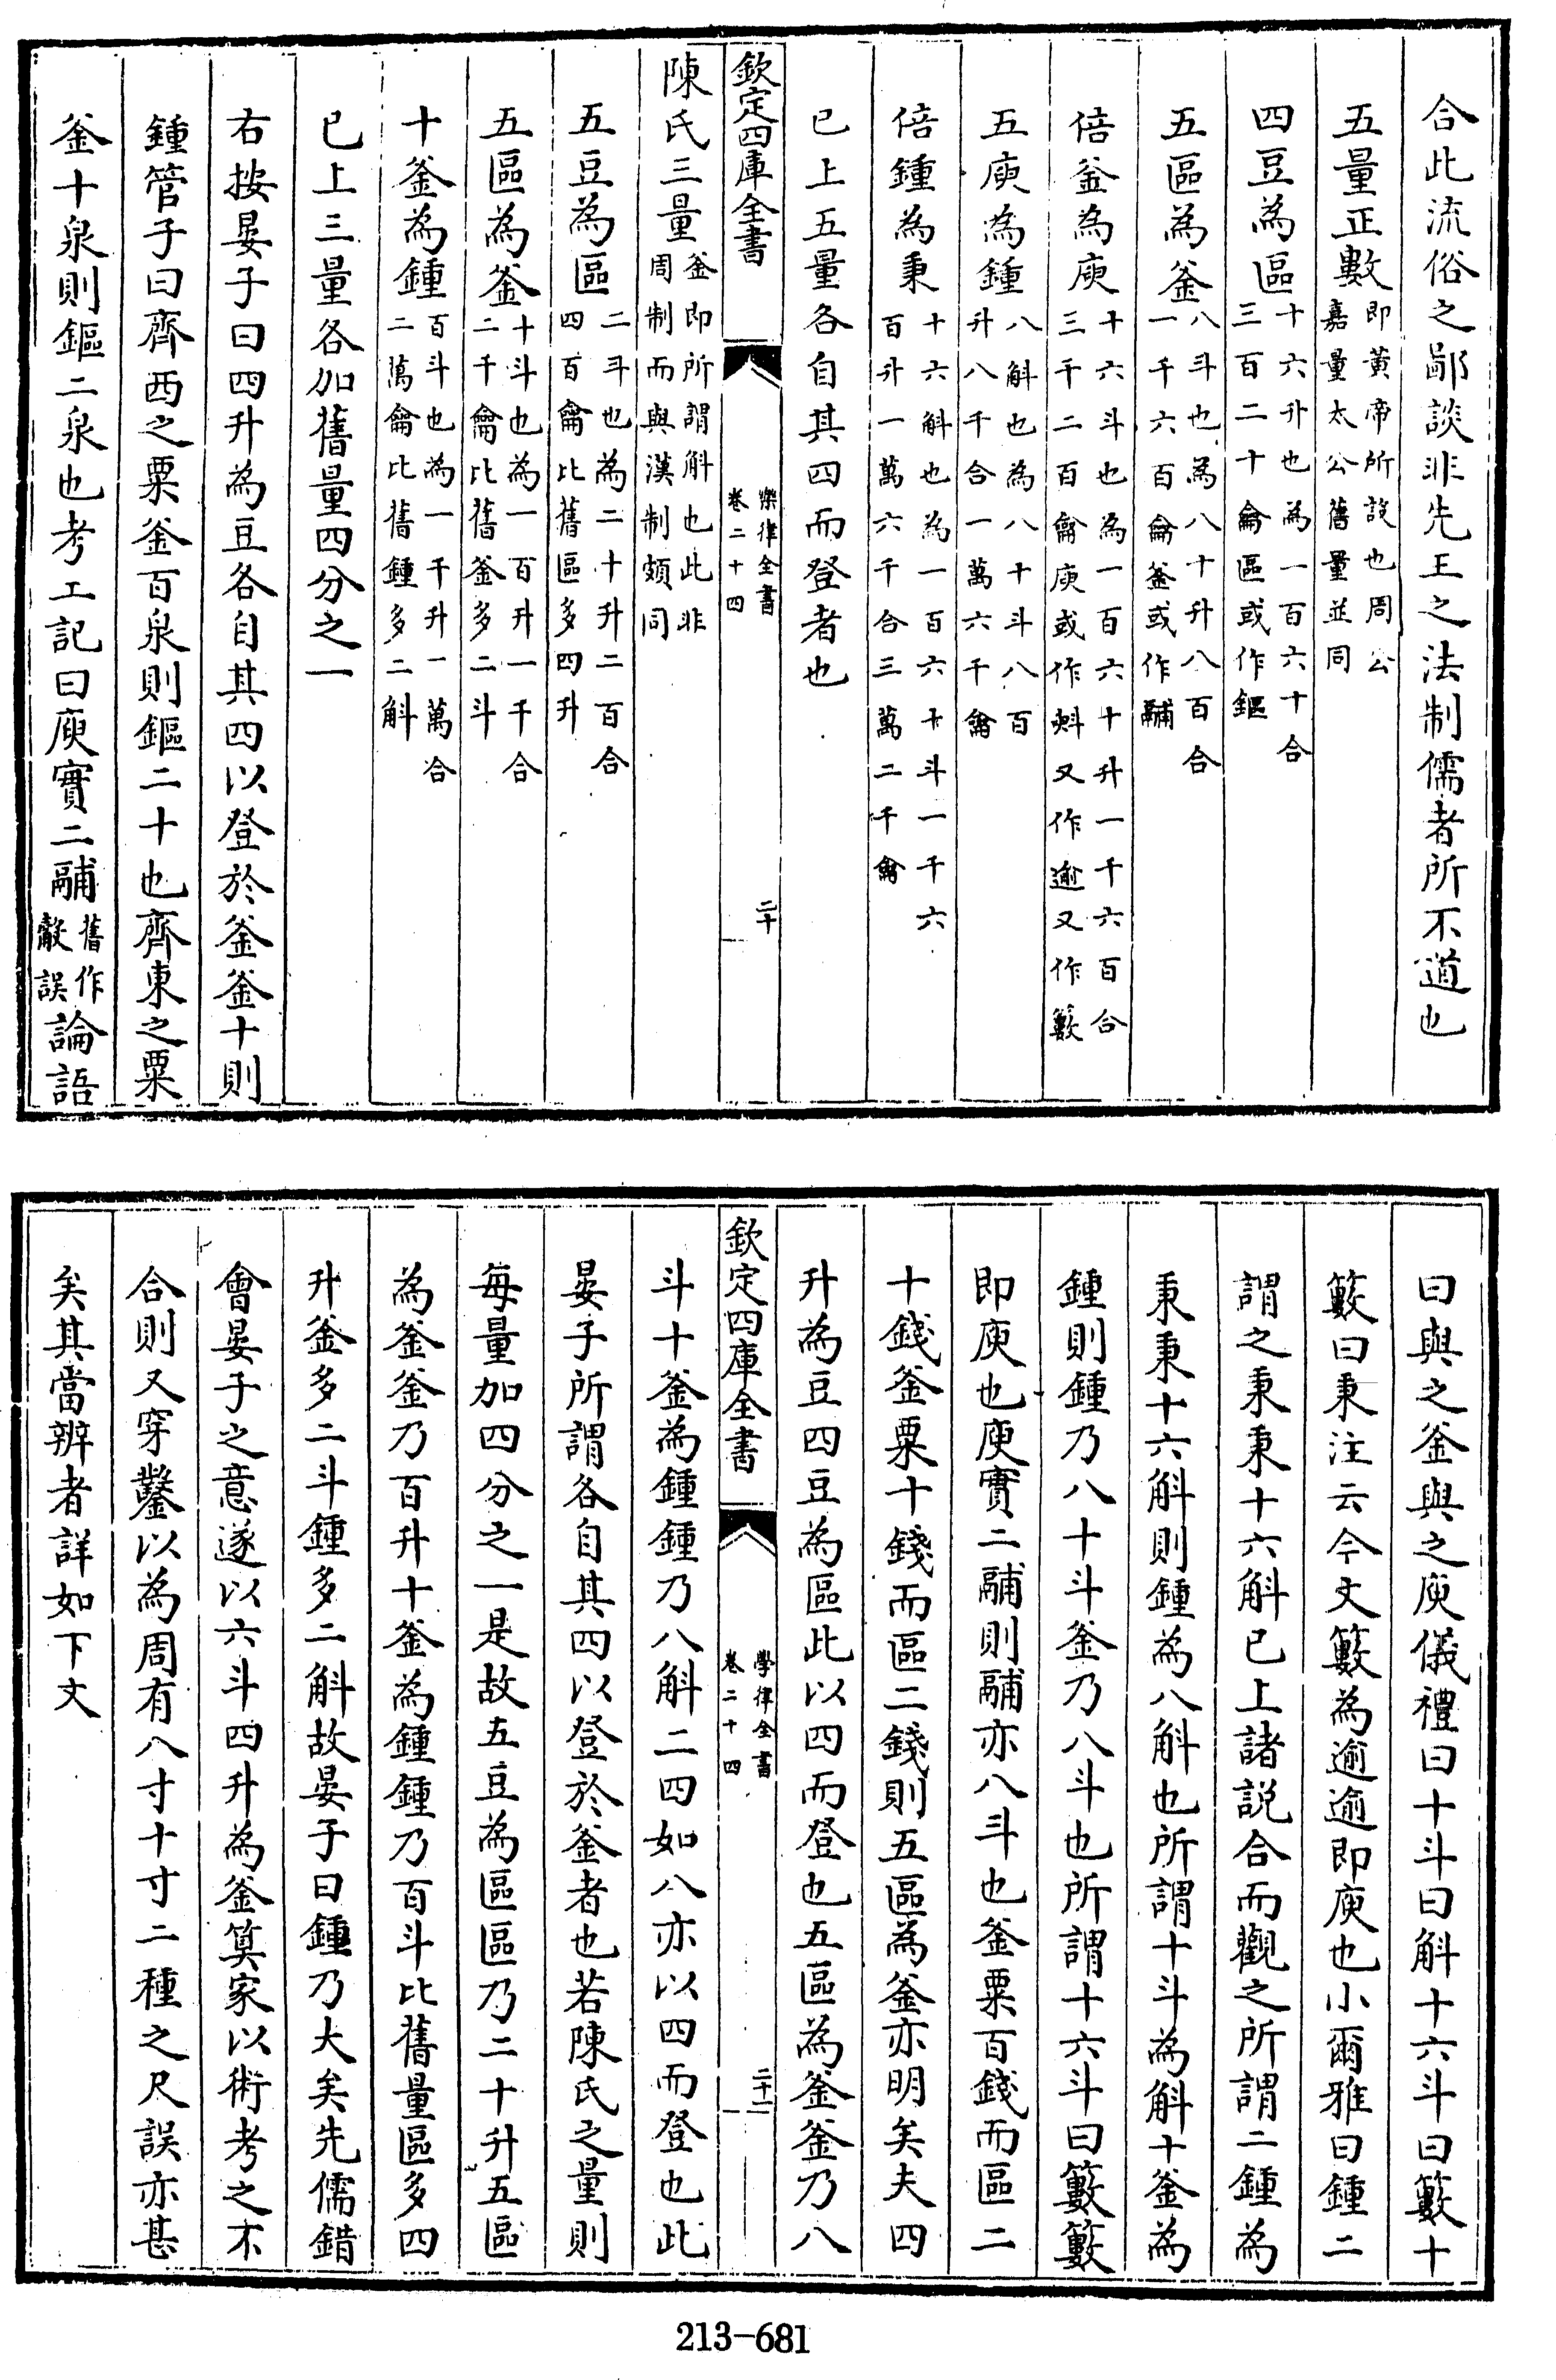 合此流俗之鄙談非先王之法制儒者所不道也
五量正數即黃帝所設也周公嘉量太公舊量並同
四豆為區十六升也為一百六十合三百二十龠區或作鏂
五區為釜八斗也為八十升八百合一千六百龠釜或作鬴
倍釜為庾十六斗也為一百六十升一千六百合三千二百龠庾或作㪷又作逾又作籔
五庾為鍾八斛也為八十斗八百升八千合一萬六千龠
倍鍾為秉十六斛也為一百六十斗一千六百升一萬六千合三萬二千龠
已上五量各自其四而登者也
欽定四庫全書 樂律全書卷二十四 二十
陳氏三量釜即所謂斛也此非周制而與漢制頗同
五豆為區二斗也為二十升二百合四百龠比舊區多四升
五區為釜十斗也為一百升一千合二千龠比舊釜多二斗
十釜為鍾百斗也為一千升一萬合二萬龠比舊鍾多二斛
已上三量各加舊量四分之一
右按晏子曰四升為豆各自其四以登於釜釜十則
鍾管子曰齊西之粟釜百泉則鏂二十也齊東之粟
釜十泉則鏂二泉也考工記曰庾實二鬴舊作觳誤論語
曰與之釜與之庾儀禮曰十斗曰斛十六斗曰籔十
籔曰秉注云今文籔為逾逾即庾也小爾雅曰鍾二
謂之秉秉十六斛已上諸說合而觀之所謂二鍾為
秉秉十六斛則鍾為八斛也所謂十斗為斛十釜為
鍾則鍾乃八十斗釜乃八斗也所謂十六斗曰籔籔
即庾也庾實二鬴則鬴亦八斗也釜粟百錢而區二
十錢釜粟十錢而區二錢則五區為釜亦明矣夫四
升為豆四豆為區此以四而登也五區為釜釜乃八
欽定四庫全書 學律全書卷二十四 二十一
斗十釜為鍾鍾乃八斛二四如八亦以四而登也此
晏子所謂各自其四以登於釜者也若陳氏之量則
每量加四分之一是故五豆為區區乃二十升五區
為釜釜乃百升十釜為鍾鍾乃百斗比舊量區多四
升釜多二斗鍾多二斛故晏子曰鍾乃大矣先儒錯
會晏子之意遂以六斗四升為釜算家以術考之不
合則又穿鑿以為周有八寸十寸二種之尺誤亦甚
矣其當辨者詳如下文
213-681